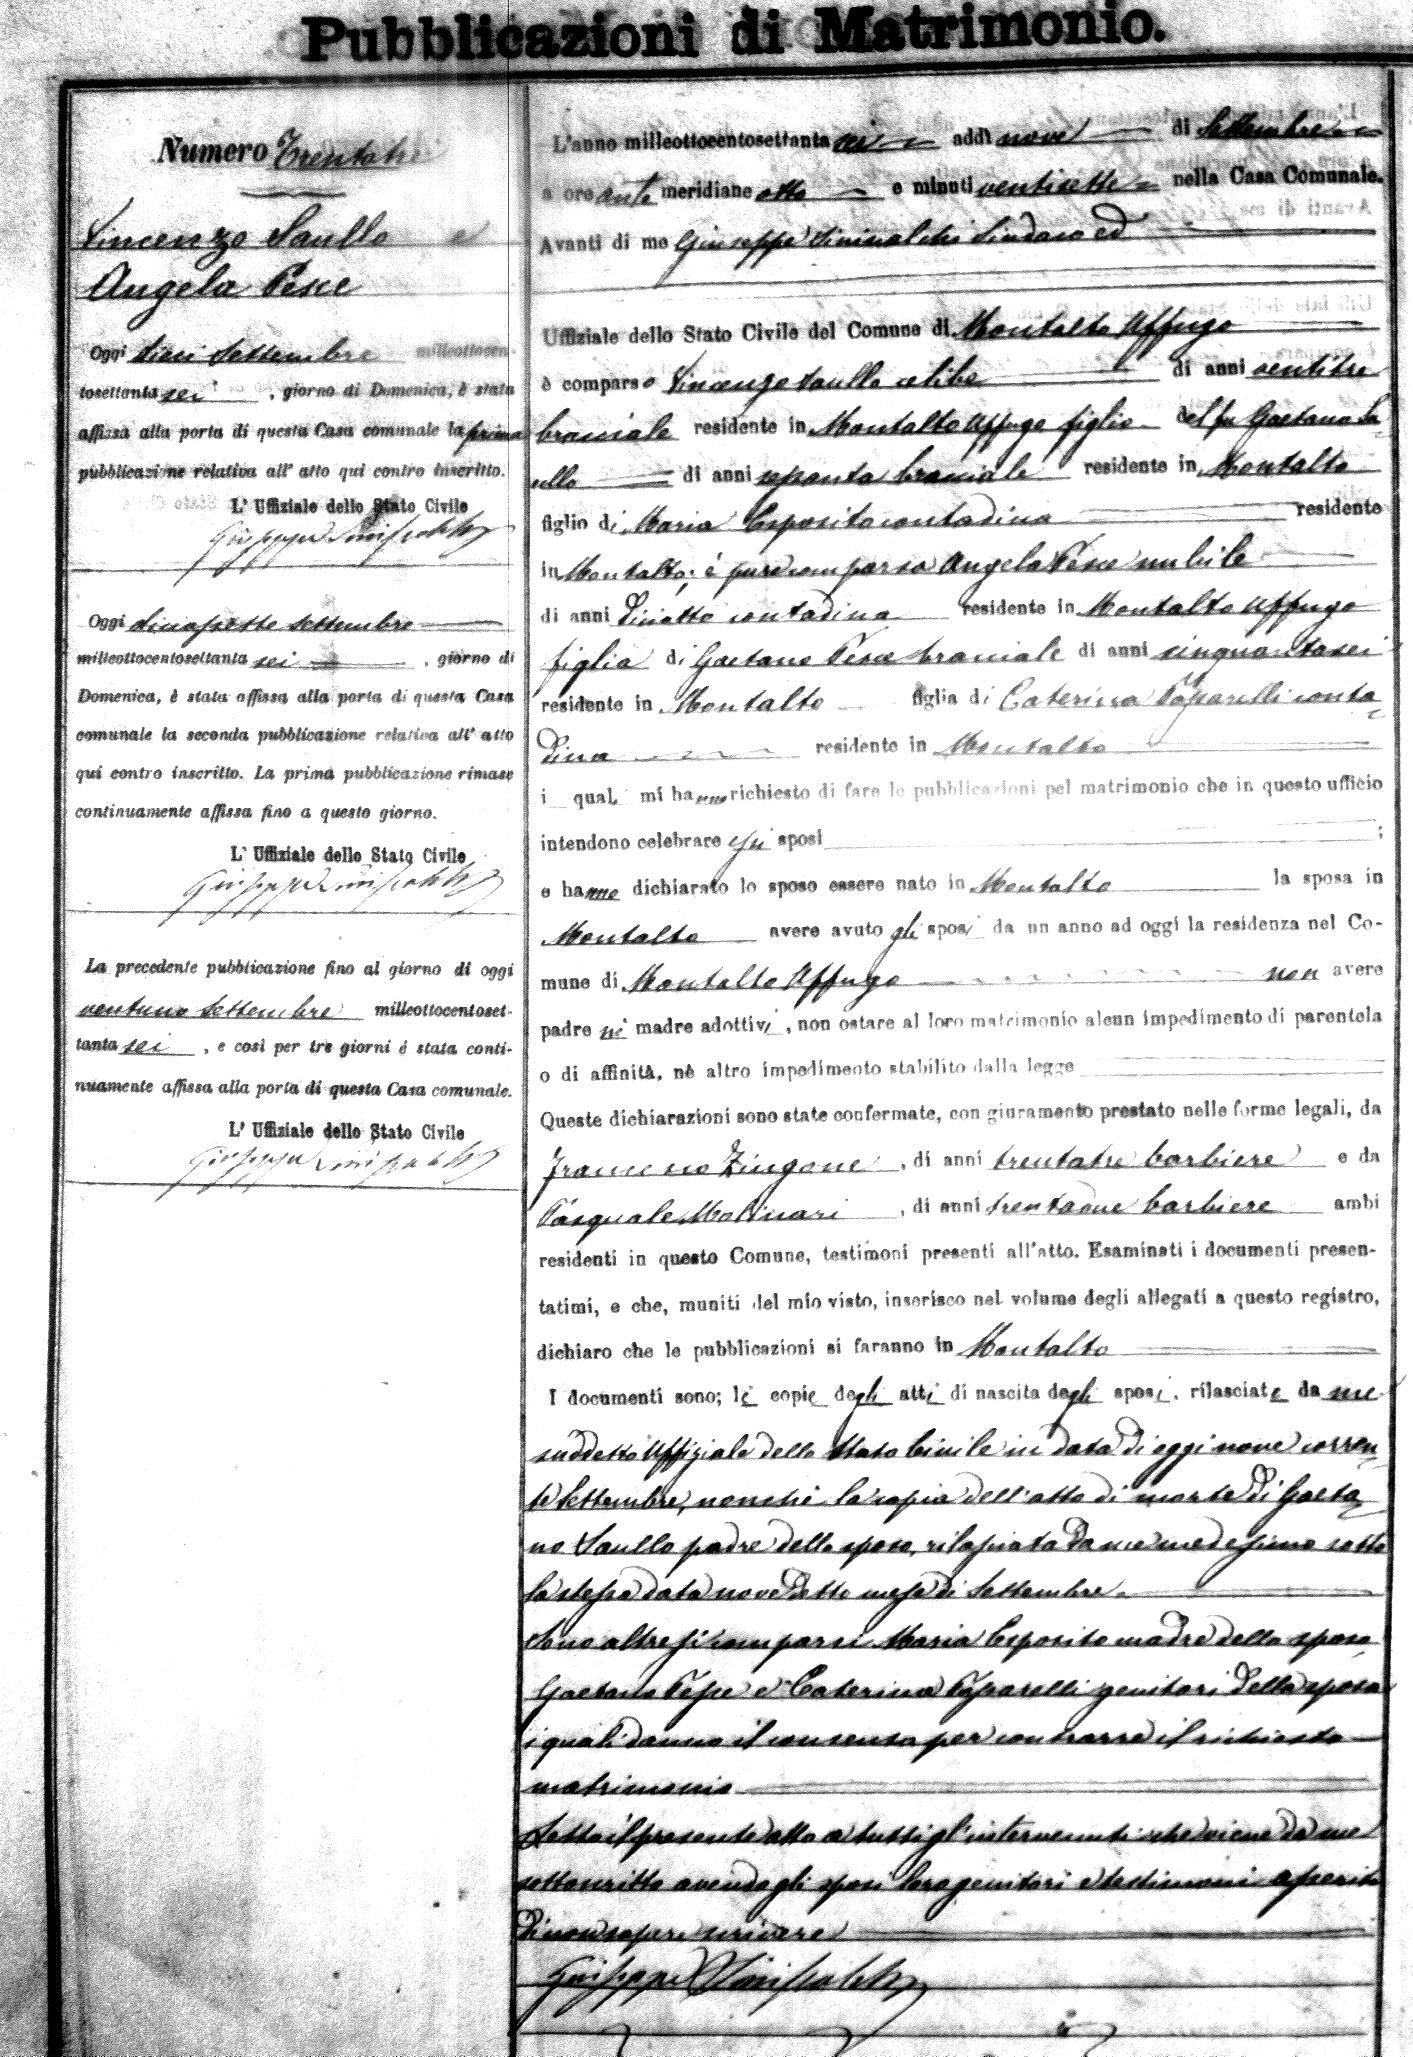 Pubblicazioni di Matrimonio.
Numero Trentatre
Vincenzo Saullo e
Angela Pesce
Oggi dieci Settembre milleottocen-
tosettanta sei, giorno di Domenica, è stata
affissa alla porta di questa Casa comunale la prima
pubblicazione relativa all' atto qui contro inscritto.
L' Uffiziale dello Stato Civile
Oggi diciassette settembre
milleottocentosettanta sei, giorno di
Domenica, è stata affissa alla porta di questa Casa
comunale la seconda pubblicazione relativa all' atto
qui contro inscritto. La prima pubblicazione rimase
continuamente affissa fino a questo giorno.
L' Uffiziale dello Stato Civile
La precedente pubblicazione fino al giorno di oggi
ventuno Settembre milleottocentoset-
tanta sei, e così per tre giorni è stata conti-
nuamente affissa alla porta di questa Casa comunale.
L' Uffiziale dello Stato Civile
L'anno milleottocentosettanta sei addì nove di Settembre
a ore ante meridiane otto e minuti ventisette nella Casa Comunale.
Avanti di me Giuseppe Sindaco ed
Uffiziale dello Stato Civile del Comune di Montalto Uffugo
è comparso Vincenzo Saullo celibe di anni ventitre
bracciale residente in Montalto Uffugo figlio del fu Gaetano Sa-
ullo di anni bracciale residente in Montalto
figlio di Maria Esposito contadina residente
in Montalto; è pure comparsa Angela Pesce nubile
di anni diciotto contadina residente in Montalto Uffugo
figlia di Gaetano Pesce bracciale di anni cinquantasei
residente in Montalto figlia di Caterina Paparelli conta-
dina residente in Montalto
i quali mi hanno richiesto di fare le pubblicazioni pel matrimonio che in questo ufficio
intendono celebrare essi sposi ;
e hanno dichiarato lo sposo essere nato in Montalto la sposa in
Montalto avere avuto gli sposi da un anno ad oggi la residenza nel Co-
mune di Montalto Uffugo non avere
padre nè madre adottivi, non ostare al loro matrimonio alcun impedimento di parentela
o di affinità, nè altro impedimento stabilito dalla legge
Queste dichiarazioni sono state confermate, con giuramento prestato nelle forme legali, da
Francesco Zingone, di anni trentatre barbiere e da
Pasquale Molinari, di anni trentadue barbiere ambi
residenti in questo Comune, testimoni presenti all'atto. Esaminati i documenti presen-
tatimi, e che, muniti del mio visto, inserisco nel volume degli allegati a questo registro,
dichiaro che le pubblicazioni si faranno in Montalto
I documenti sono; le copie degli atti di nascita degli sposi, rilasciate da me
suddetto Uffiziale dello Stato Civile in data di oggi nove corren-
te Settembre, nonchè la copia dell'atto di morte di Gaeta-
no Saullo padre dello sposo, rilasciata da me medesimo sotto
la stessa data nove detto mese di Settembre.
Sono altresì comparsi Maria Esposito madre dello sposo
Gaetano Pesce e Caterina Paparelli genitori della sposa
i quali danno il consenso per contrarre il richiesto
matrimonio
Letto il presente atto a tutti gl'intervenuti che viene da me
sottoscritto avendo gli sposi loro genitori e testimoni asserito
di non sapere scrivere